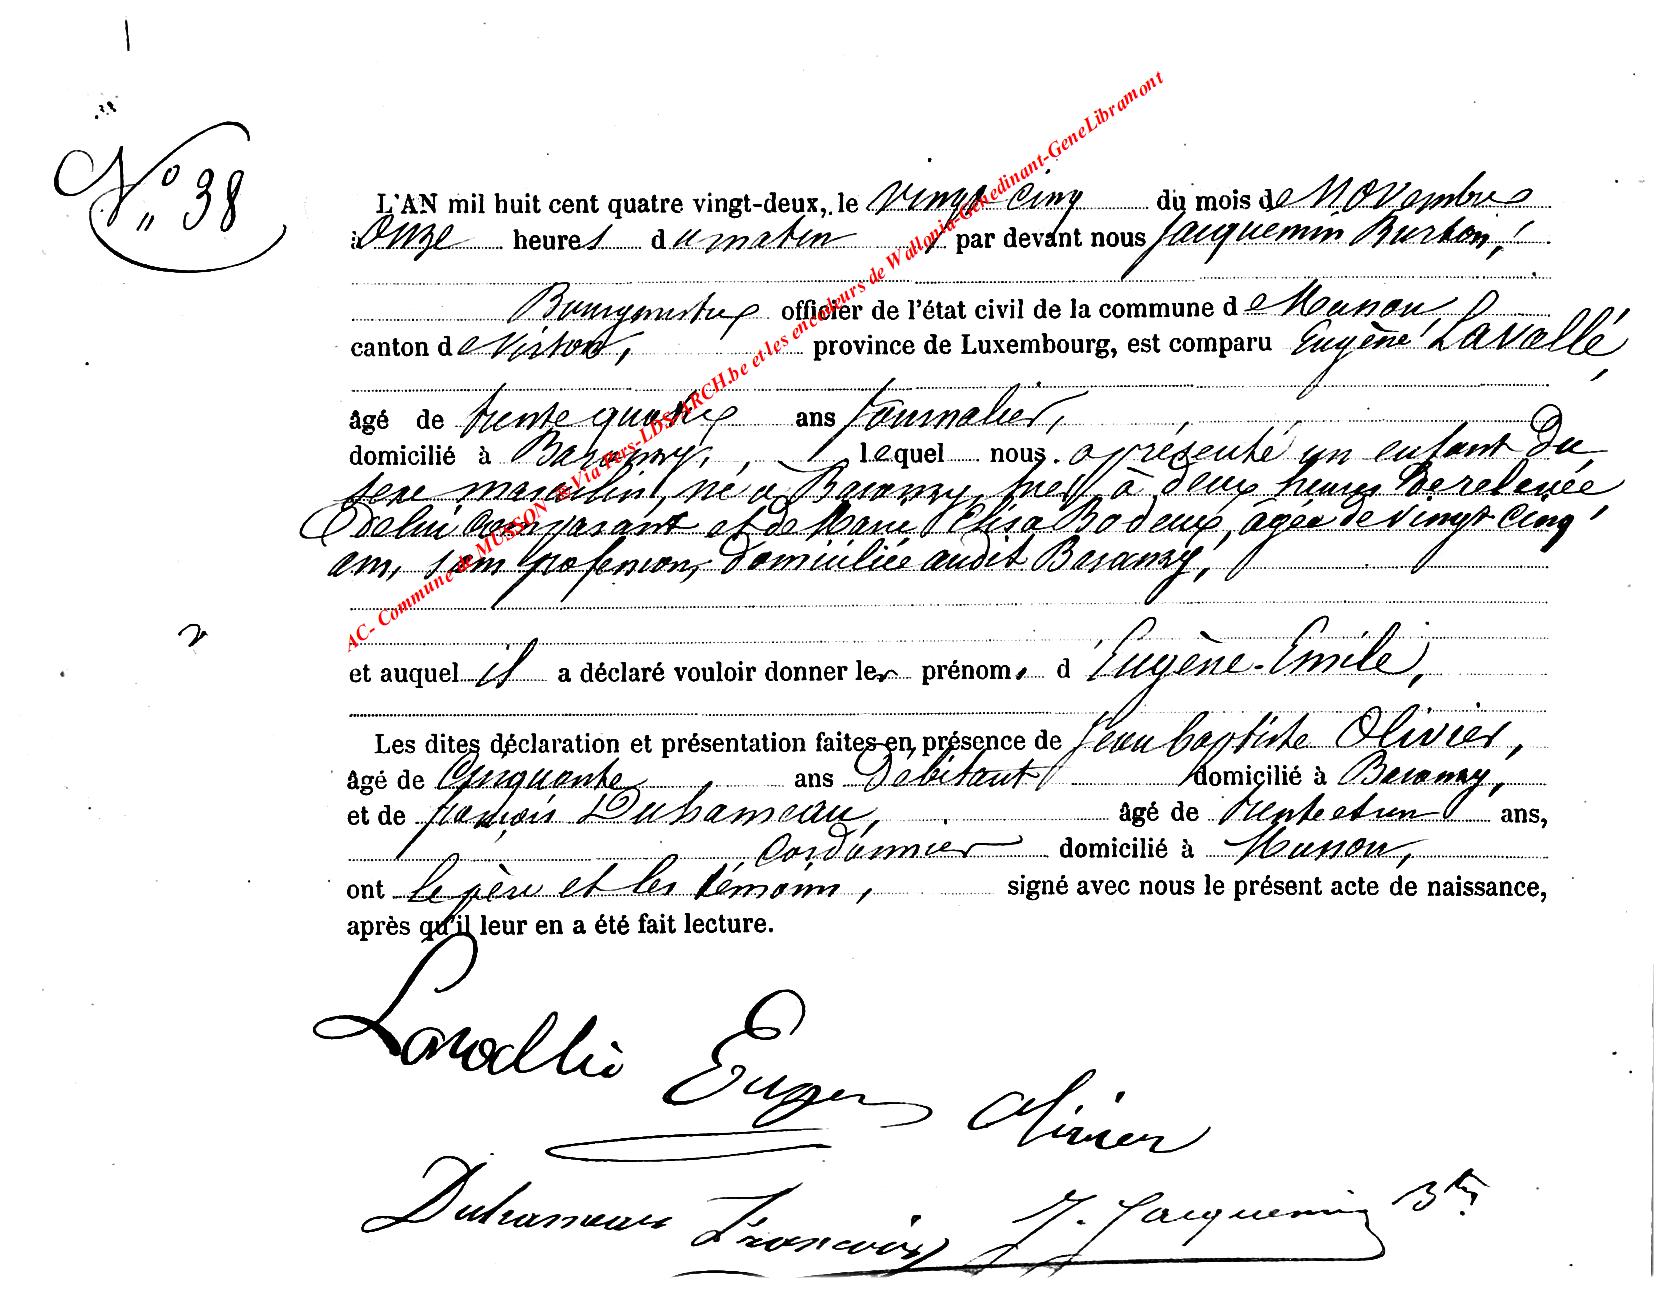 N° 38
L'AN mil huit cent quatre vingt-deux, le vingt cinq du mois de Novembre
à Onze heures du matin par devant nous Jacquemin Burton,
Bourgmestre officier de l'état civil de la commune de Musson
canton de Virton, province de Luxembourg, est comparu Eugène Lavallé,
âgé de trente quatre ans Journalier,
domicilié à Baranzy, lequel nous a présenté un enfant du
sexe masculin, né à Baranzy, hier à deux heures de relevée
de lui comparant et de Marie Elisa Bodeux, âgée de vingt cinq
ans, sans profession, domiciliée audit Baranzy,
et auquel il a déclaré vouloir donner les prénoms d'Eugène-Emile,
Les dites déclaration et présentation faites en présence de Jean baptiste Olivier,
âgé de Cinquante ans Débitant domicilié à Baranzy,
et de françois Duhameau, âgé de trente et un ans,
Cordonnier domicilié à Musson,
ont le père et les témoins, signé avec nous le présent acte de naissance,
après qu'il leur en a été fait lecture.
Lavallé Eugen Olivier
Duhameau François J. Jacquemin Btn
AC- Commune de MUSSON Via Pers-LDS-ARCH.be et les encodeurs de Wallonia-Genedinant-GeneLibramont